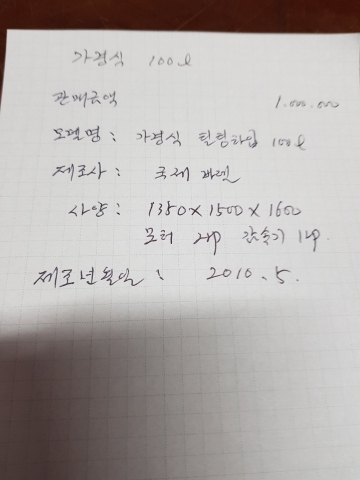 가경식 100ℓ
판매금액 1.000.000
모델명 : 가경식 틸팅타입 100ℓ
제조사 : 국제 바렐
사양 : 1350×1500×1600
모터 2HP 감속기 1HP.
제조년월일 : 2010. 5.